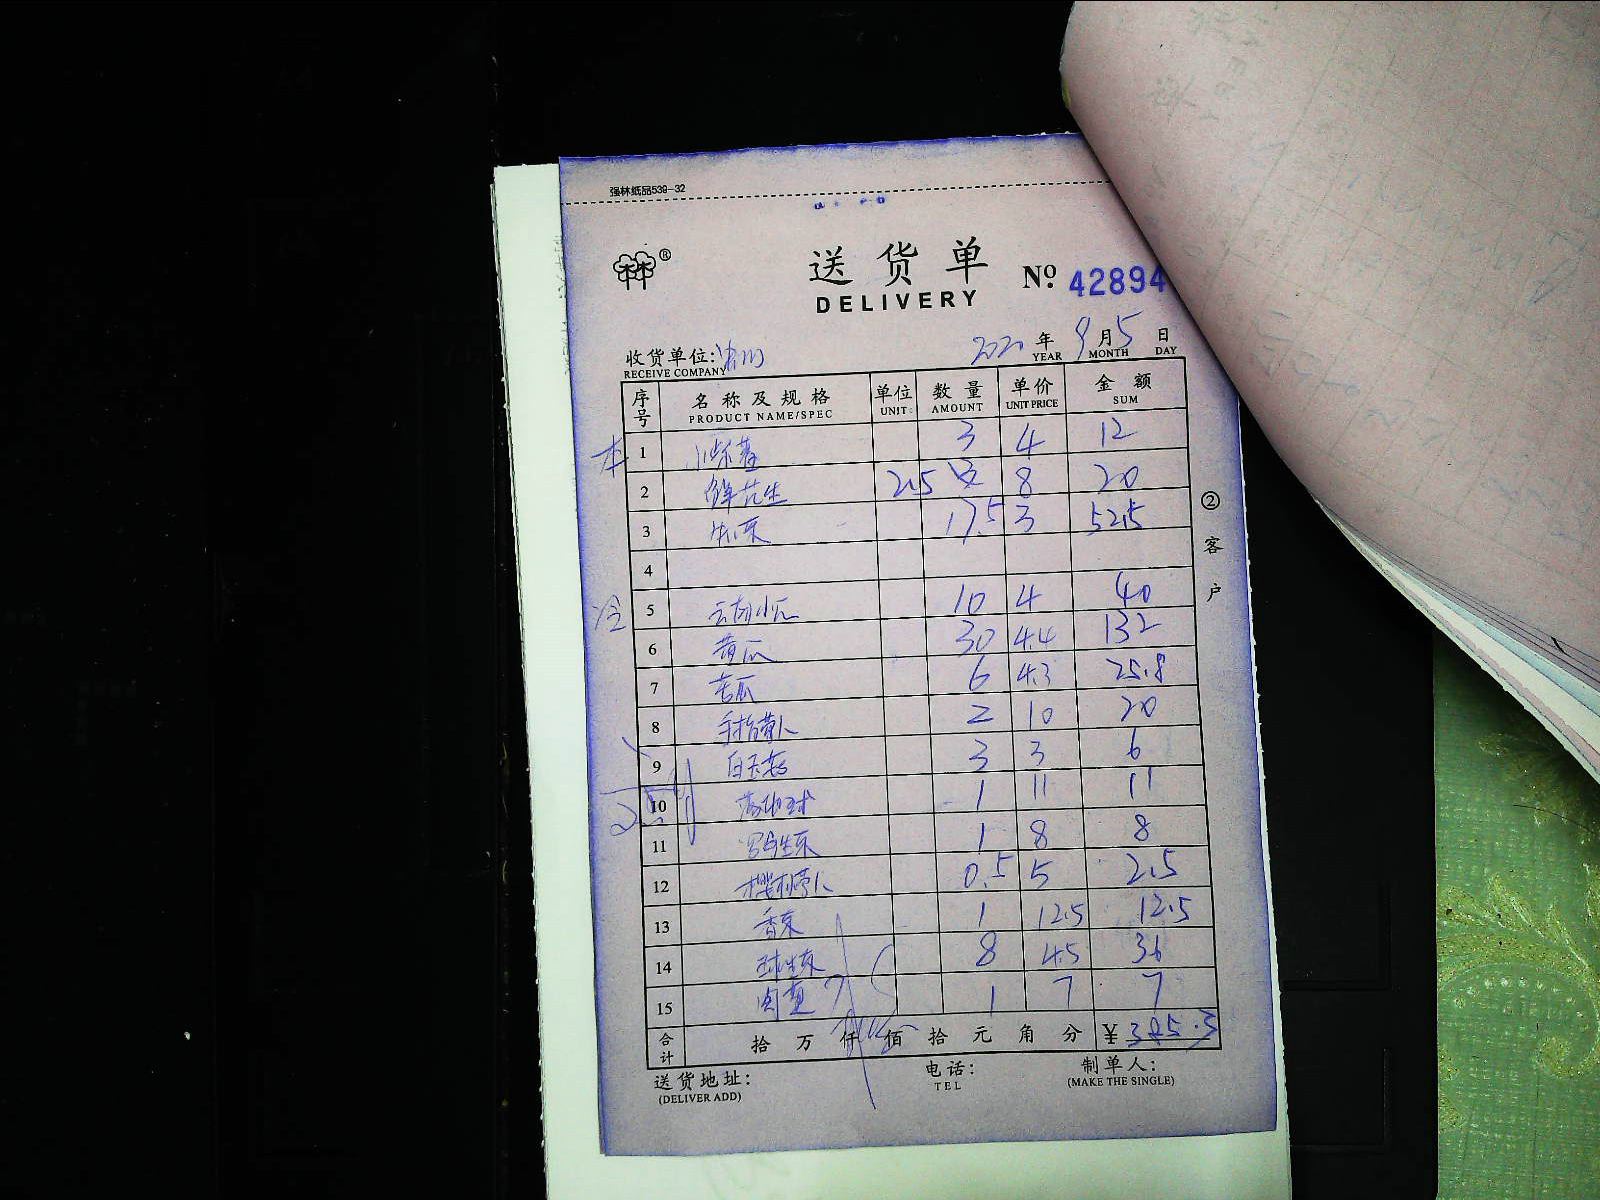 强林纸品539-32
林®
送货单
DELIVERY
Nº. 42894
收货单位:
RECEIVE COMPANY
2020 年 9 月 5 日
YEAR MONTH DAY
序号 名称及规格 单位 数量 单价 金额
PRODUCT NAME/SPEC UNIT AMOUNT UNIT PRICE SUM
本 1 小柴 3 4 12
2 鲜花生 2.5 8 20
3 17.5 3 52.5
4
冷 5 云南小瓜 10 4 40
6 黄瓜 30 4.4 132
7 苦瓜 6 4.3 25.8
8 手指萝卜 2 10 20
9 白玉菇 3 3 6
10 1 11 11
11 罗马生菜 1 8 8
12 樱桃萝卜 0.5 5 2.5
13 香菜 1 12.5 12.5
14 球生菜 8 4.5 36
15 1 7 7
合计 拾 万 仟 佰 拾 元 角 分 ¥ 385.3
送货地址: 电话: 制单人:
(DELIVER ADD) TEL (MAKE THE SINGLE)
② 客户